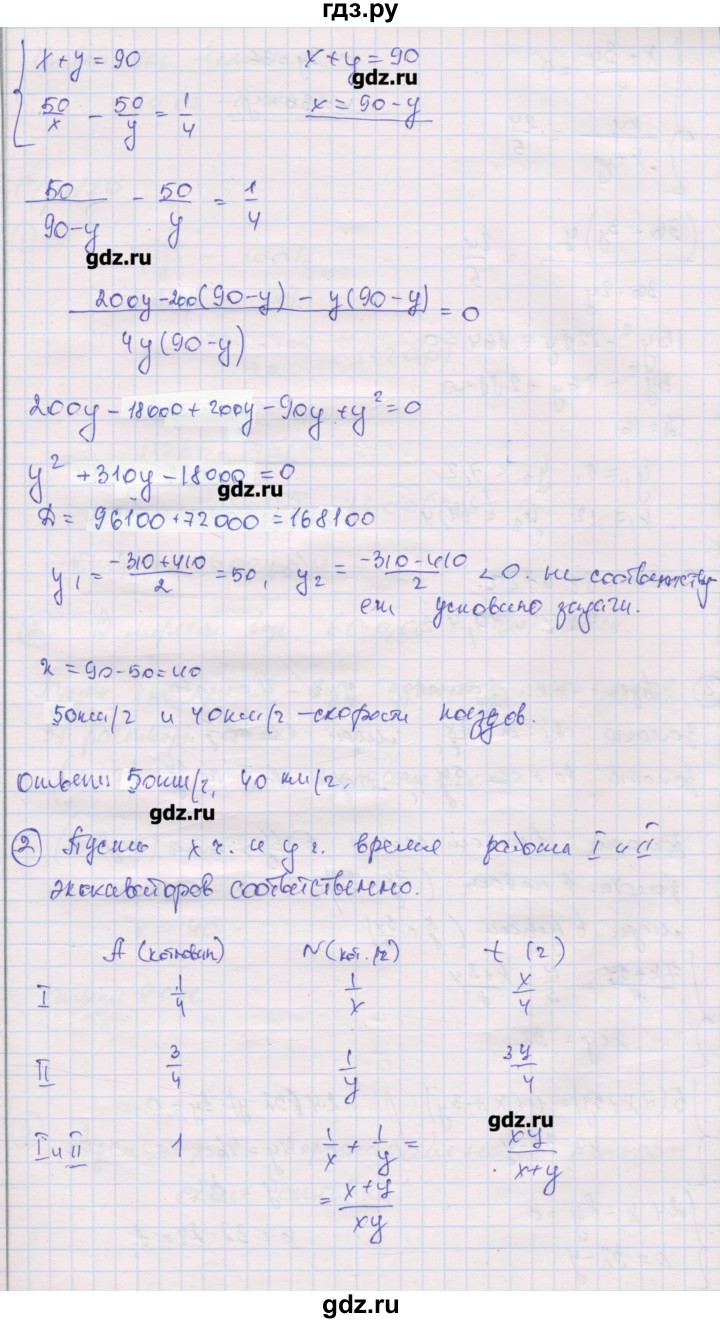 гдз.ру
{ x + y = 90    x + y = 90
gdz.ru
50/x - 50/y = 1/4    x = 90 - y
50/(90-y) - 50/y = 1/4
gdz.ru
(200y - 200(90-y) - y(90-y))/(4y(90-y)) = 0
200y - 18000 + 200y - 90y + y² = 0
y² + 310y - 18000 = 0
gdz.ru
D = 96100 + 72000 = 168100
y₁ = (-310 + 410)/2 = 50, y₂ = (-310 - 410)/2 < 0. не соответству-
ет условию задачи.
x = 90 - 50 = 40
50 км/ч и 40 км/ч – скорости поездов.
Ответ: 50 км/ч, 40 км/ч.
gdz.ru
② Пусть x ч. и y ч. время работы I и II
экскаваторов соответственно.
A (котлован)    N (кот./ч)    t (ч)
I    1/4    1/x    x/4
II    3/4    1/y    3y/4
gdz.ru
I и II    1    1/x + 1/y =    xy/(x+y)
= (x+y)/xy
gdz.ru